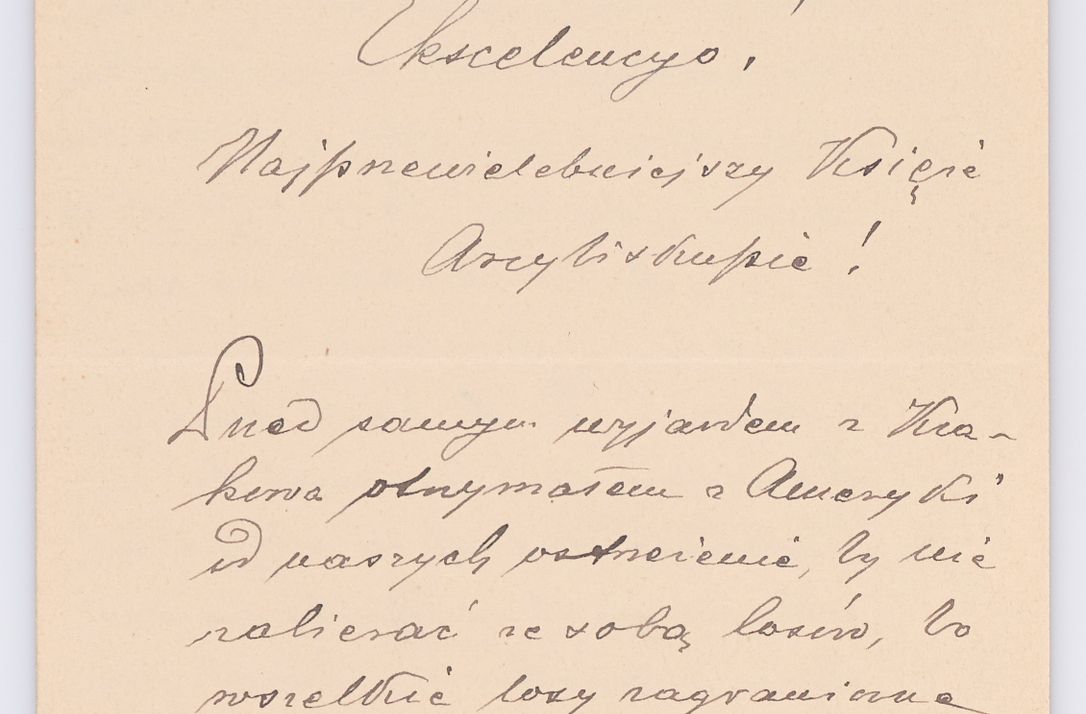 Ekscelencyo!
Najprzewielebniejszy Księże
Arcybiskupie!
Przed samym wyjazdem z Kra-
kowa otrzymałem z Ameryki
od naszych ostrzeżenie, by nie
zabierać ze sobą losów, bo
wszelkie losy zagraniczne